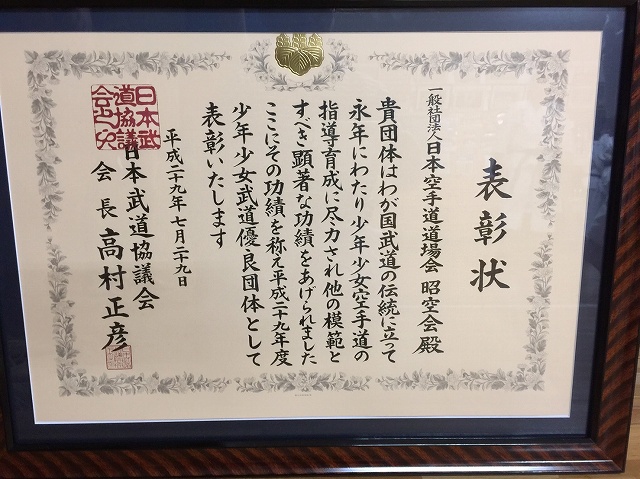 表彰状
一般社団法人日本空手道道場会 昭空会殿
貴団体はわが国武道の伝統に立って
永年にわたり少年少女空手道の
指導育成に尽力され他の模範と
すべき顕著な功績をあげられました
ここにその功績を称え平成二十九年度
少年少女武道優良団体として
表彰いたします
平成二十九年七月二十九日
日本武道協議会
会長 高村正彦
日本武
道協議
会之印